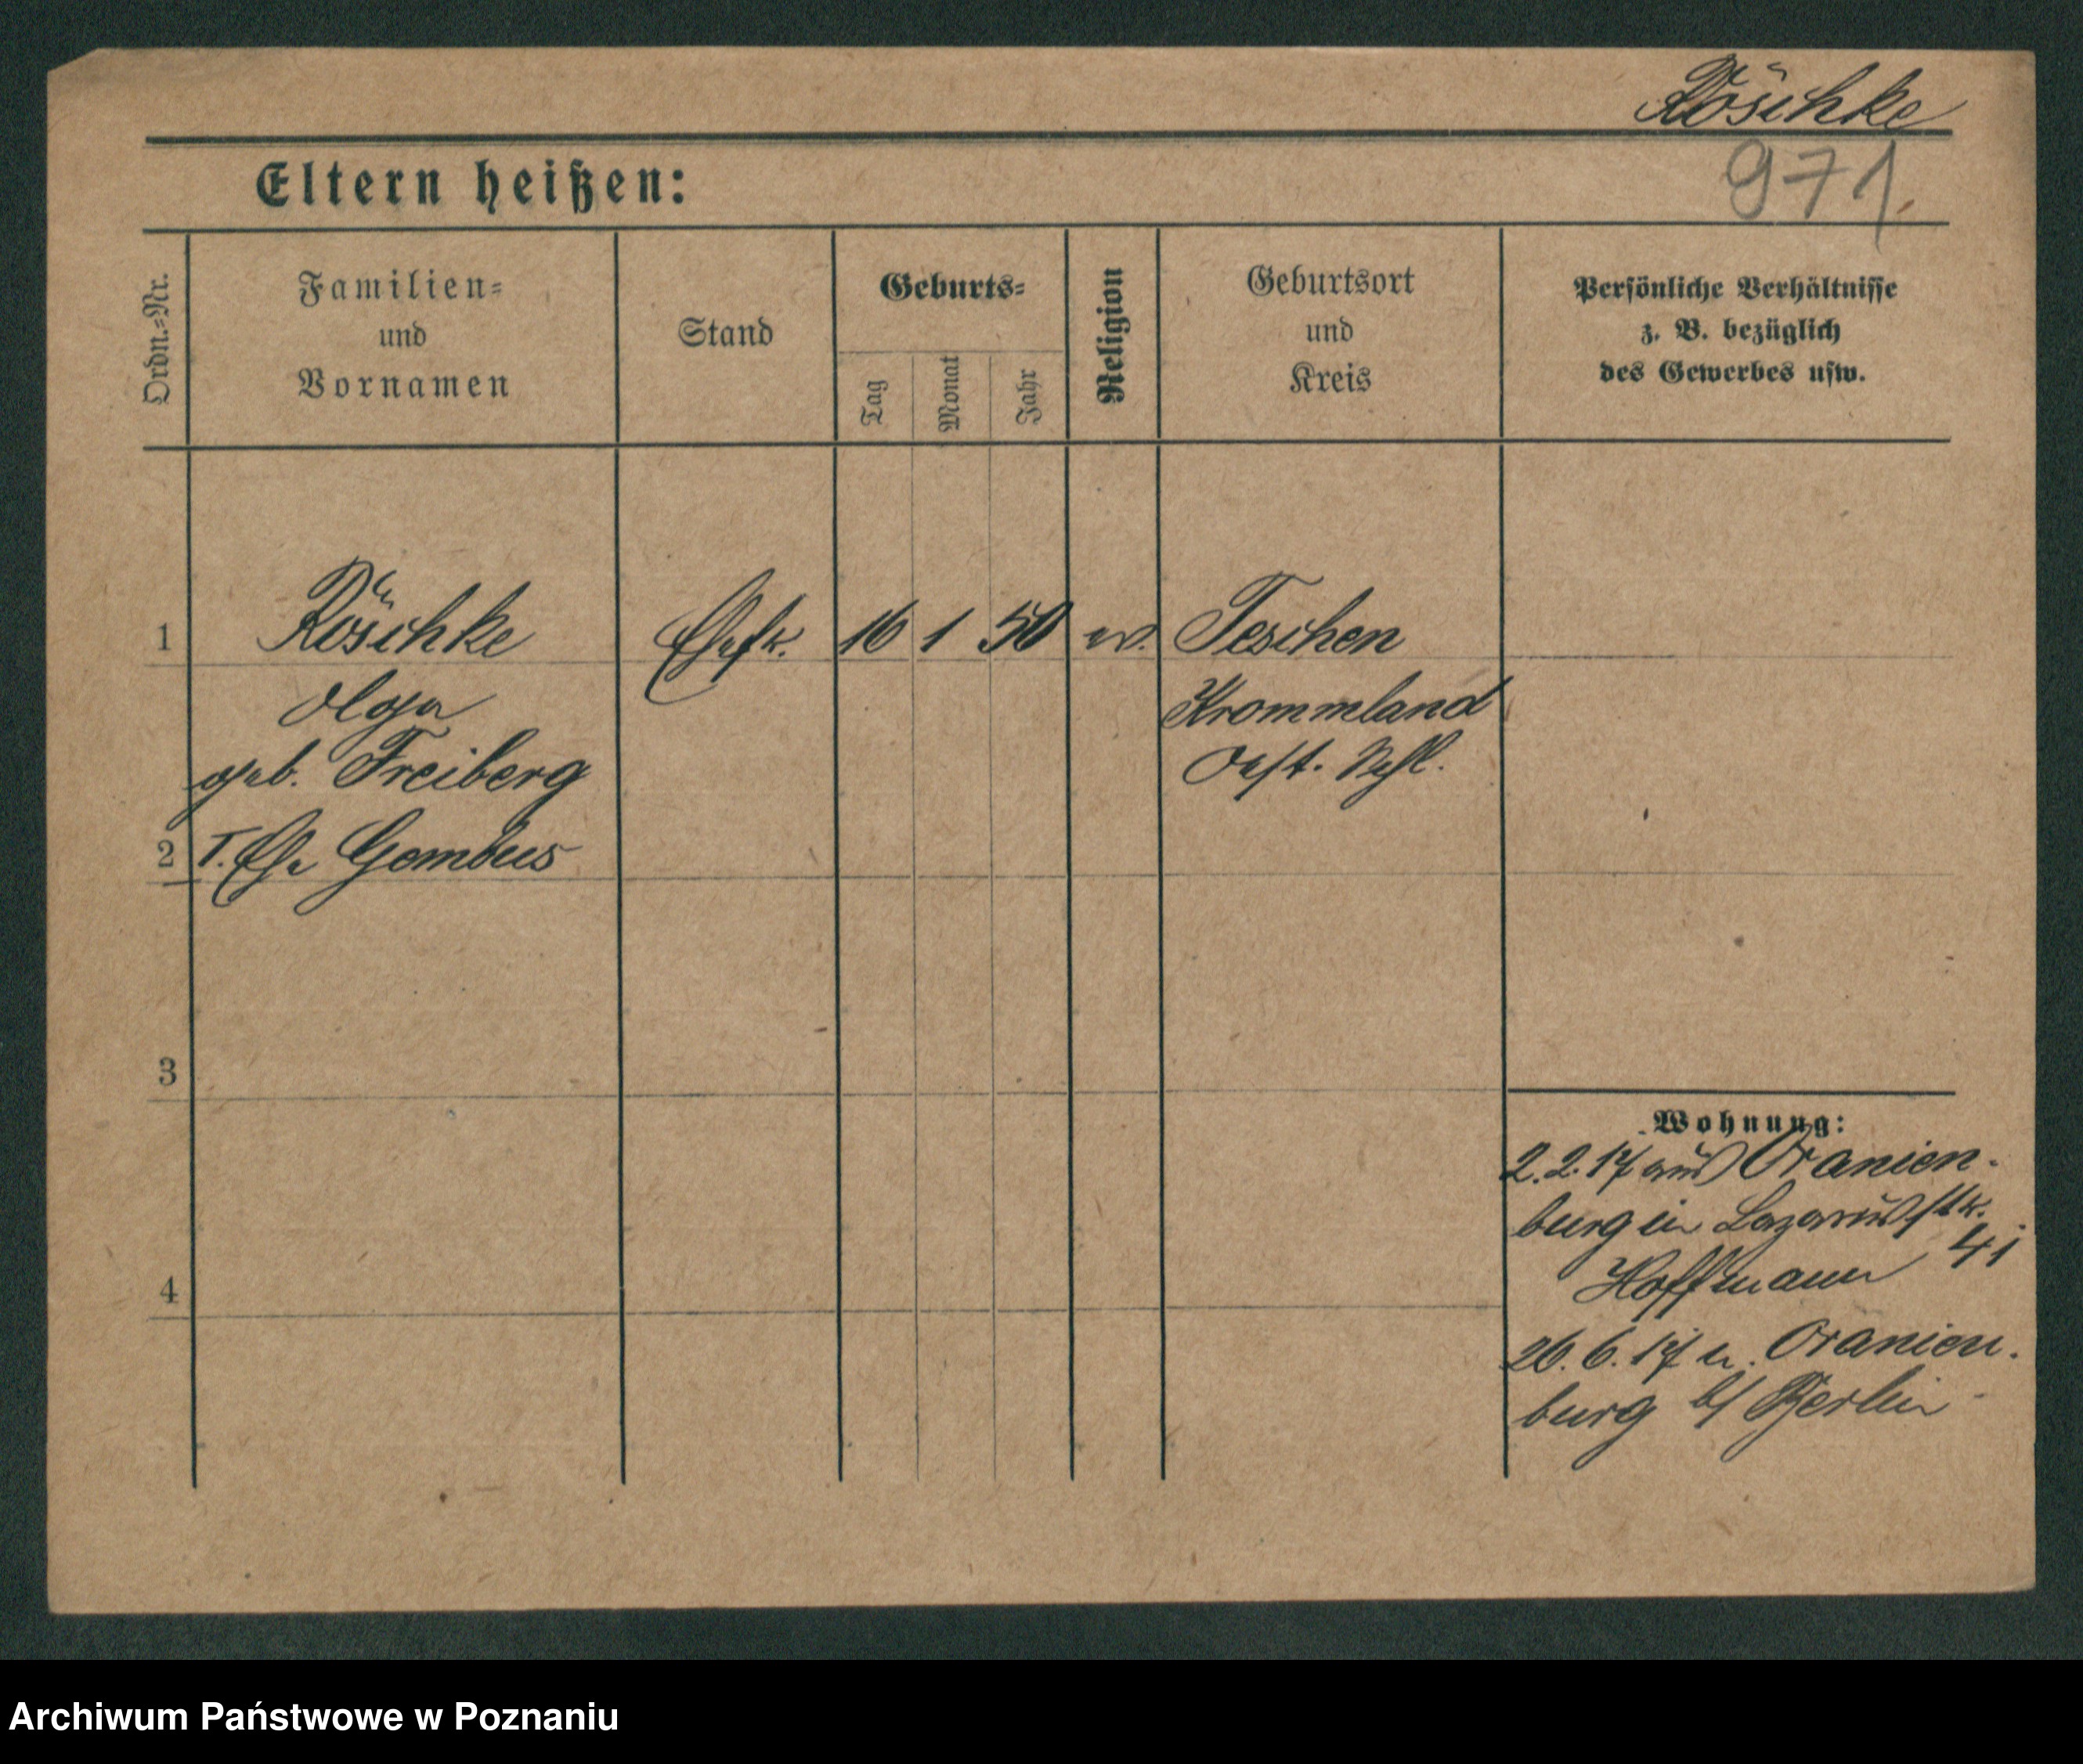 Röschke
971.
Eltern heißen:
Ordn.=Nr.
Familien=
und
Vornamen
Stand
Geburts=
Tag
Monat
Jahr
Religion
Geburtsort
und
Kreis
Persönliche Verhältnisse
z. B. bezüglich
des Gewerbes usw.
1
Röschke
Ehefr.
16 1 50
ev.
Teschen
Olga
Krommland
geb. Freiberg
Oest. Schl.
2
I. Ehe Gembus
3
4
Wohnung:
2.2.17 aus Oranien-
burg in Lazarusstr.
Hoffmann 4 i
26.6.17 n. Oranien-
burg b/ Berlin
Archiwum Państwowe w Poznaniu